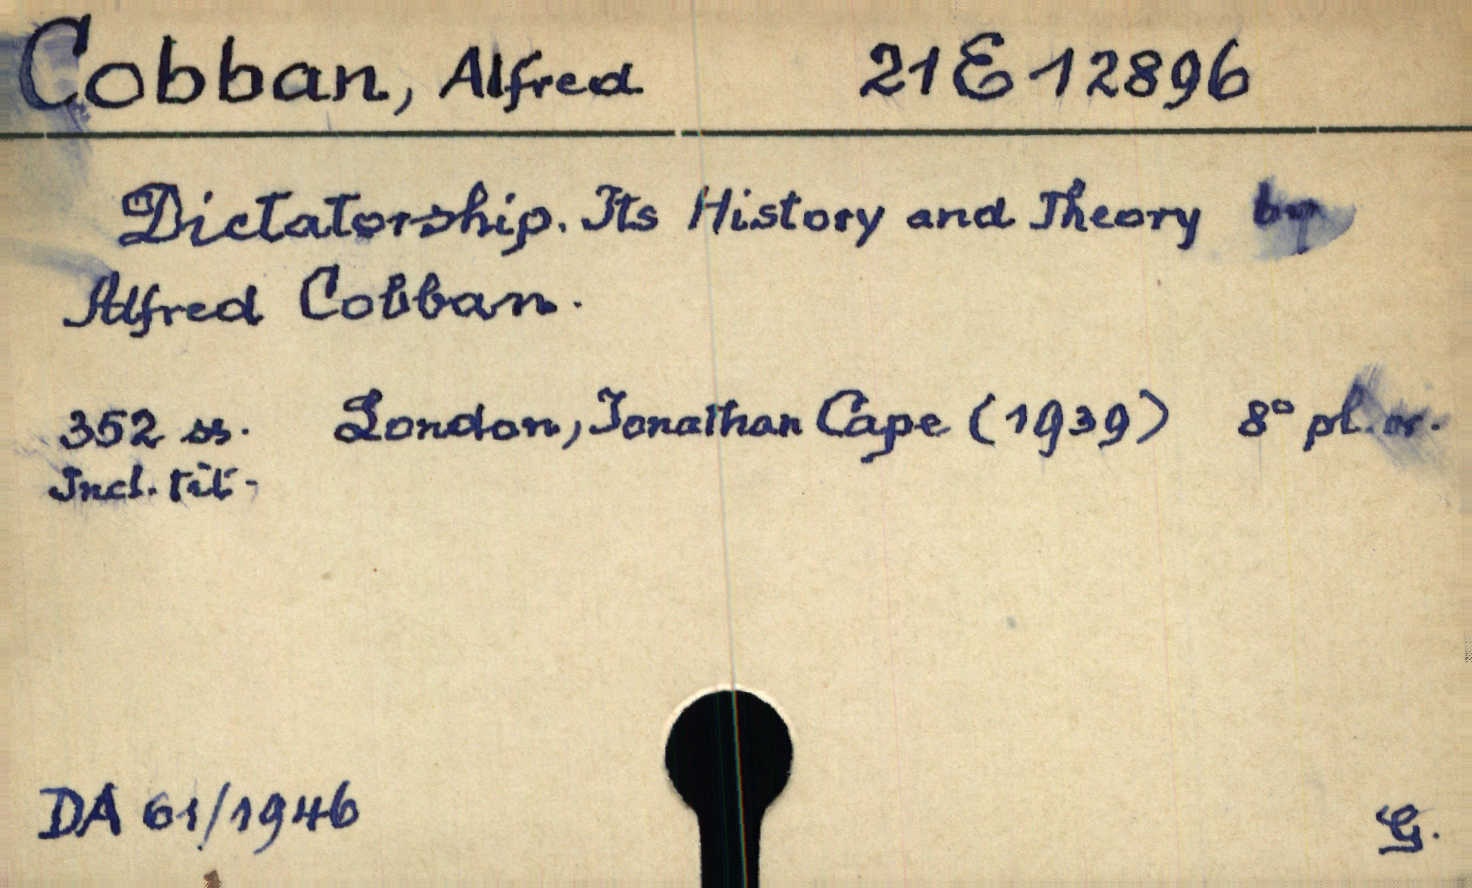 Cobban, Alfred 21 E 12896
Dictatorship. Its History and Theory by
Alfred Cobban.
352 ss. London, Jonathan Cape (1939) 8° pl. or.
Incl. tit.
DA 61/1946
G.